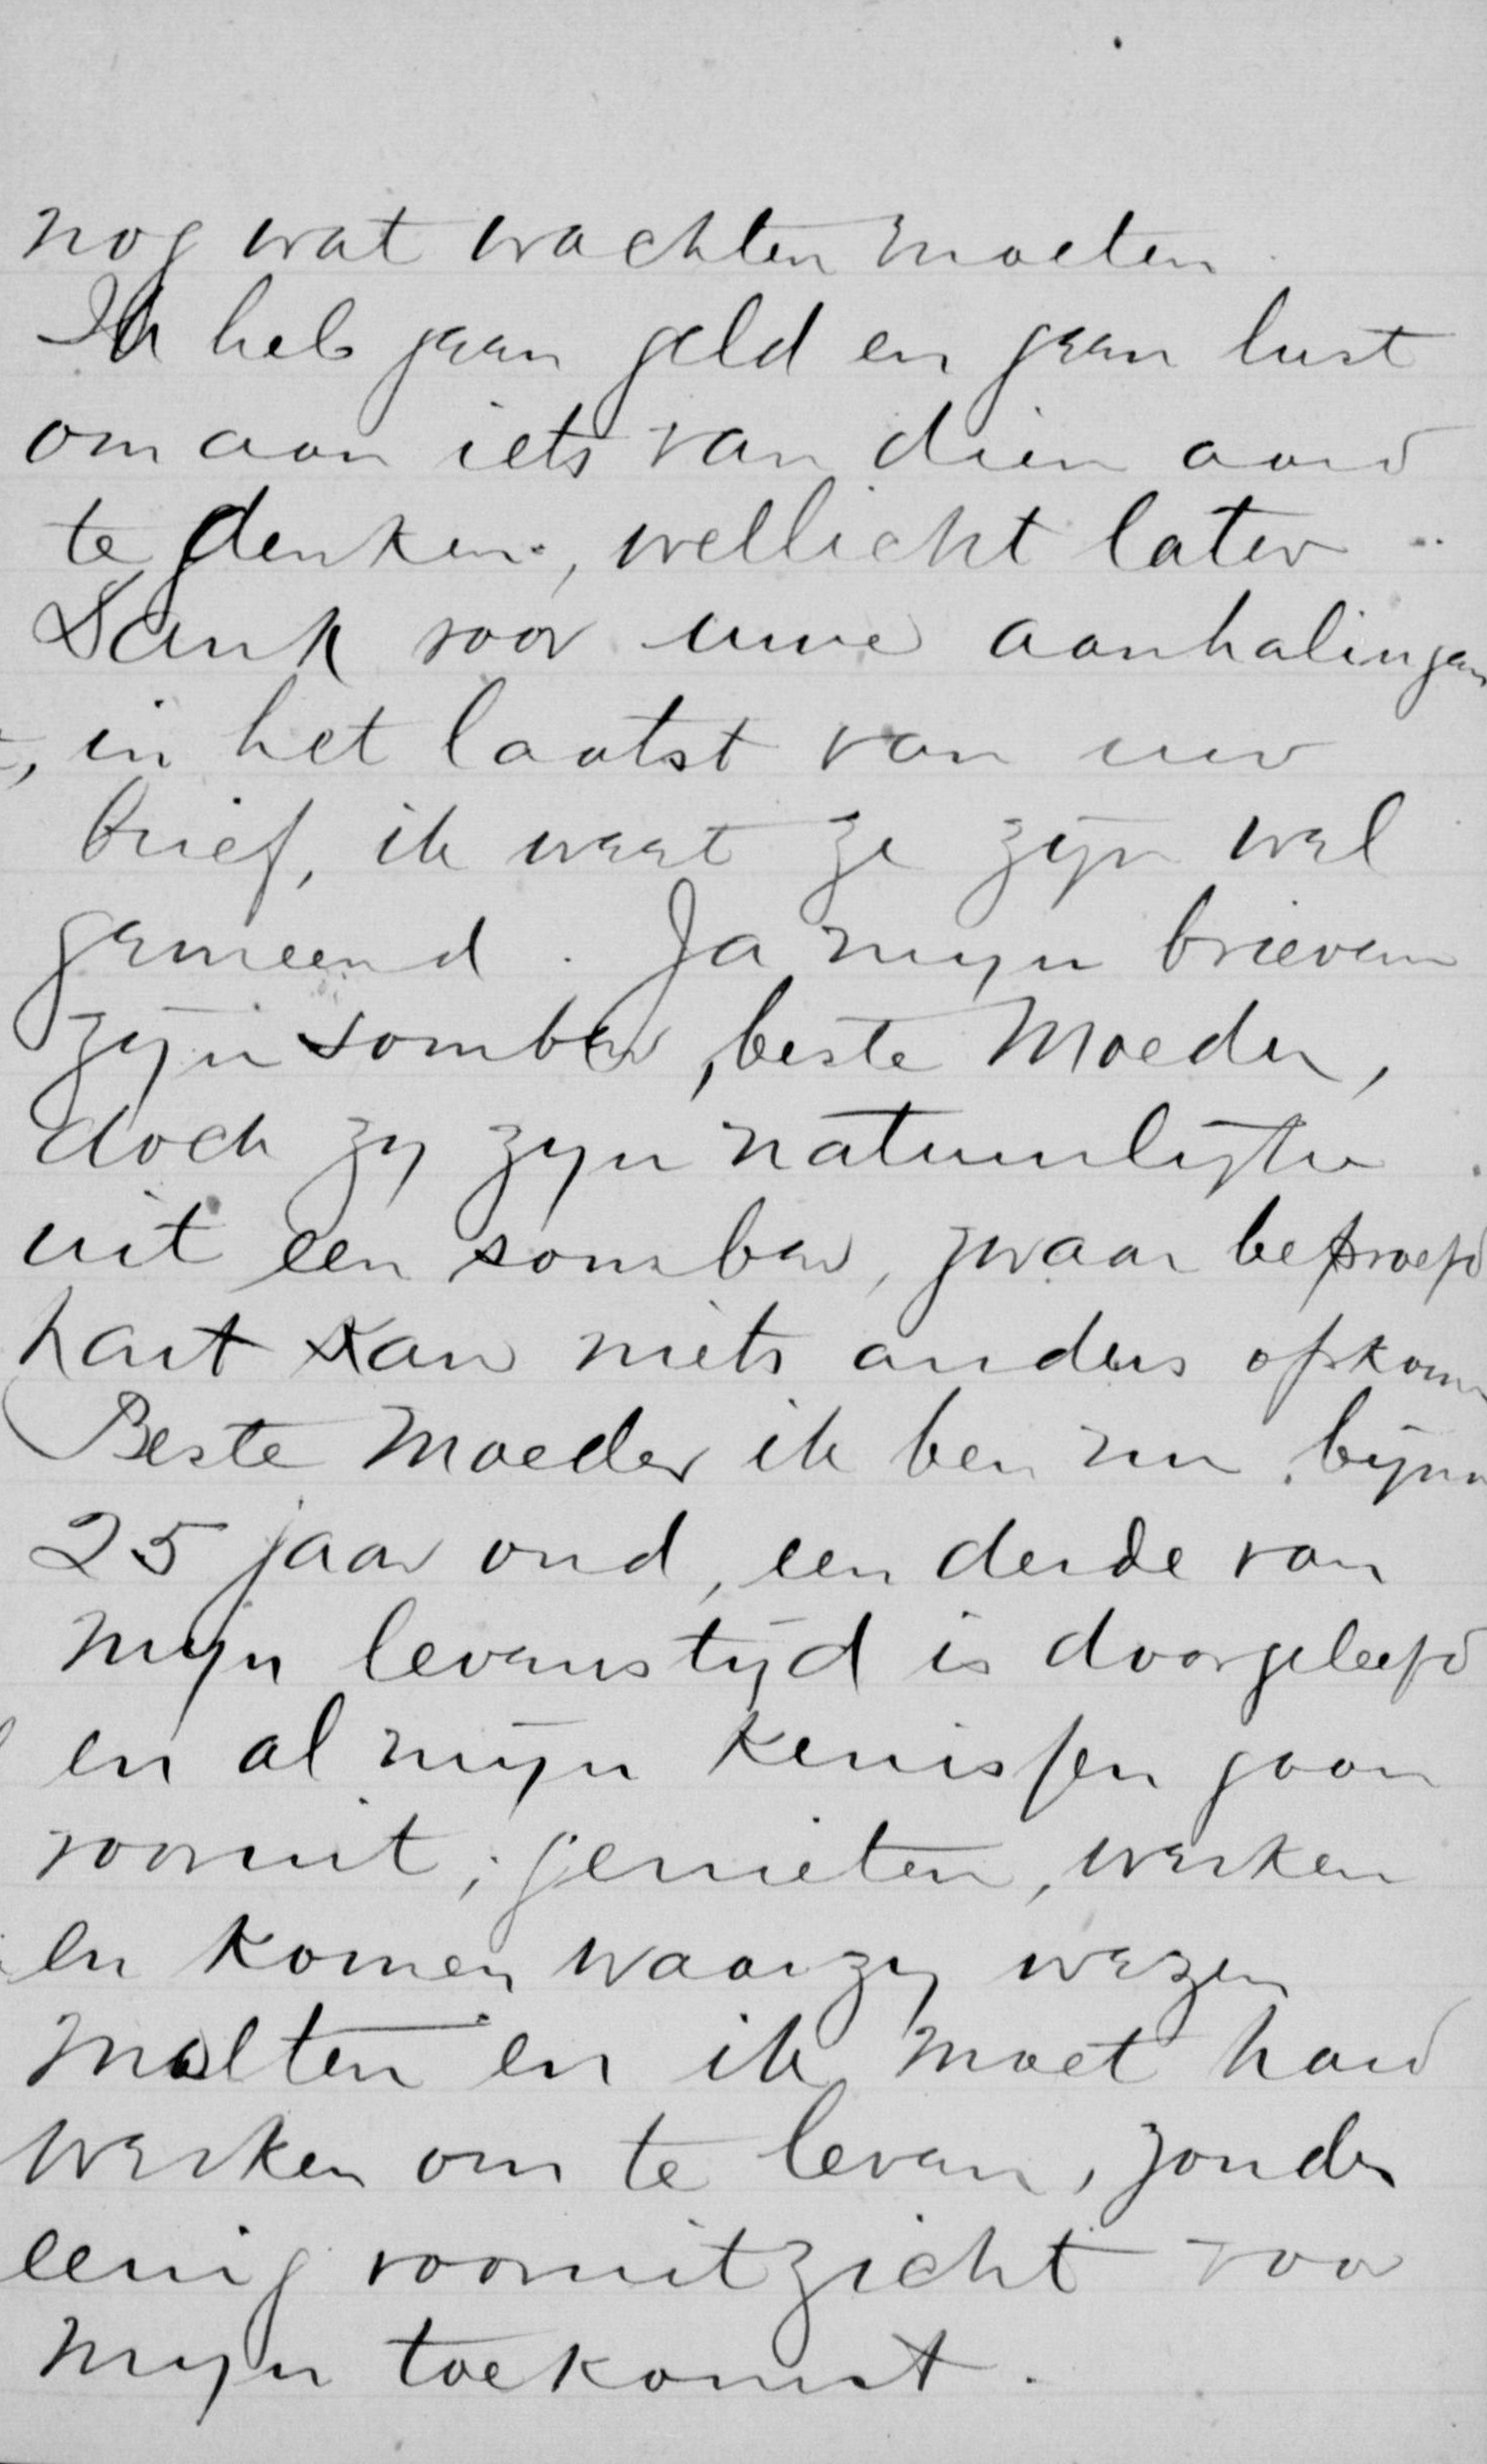 nog wat wachten moeten.
Ik heb geen geld en geen lust
om aan iets van dien aard
te denken, wellicht later..
Dank voor uwe aanhalingen
, in het laatst van uw
brief, ik weet ze zijn wel
gemeend. Ja mijn brieven
zijn somber, beste Moeder,
doch zy zyn natuurlijker
uit een somber, zwaar beproefd
hart kan niets anders opkom
Beste Moeder ik ben nu bijna
25 jaar oud, een derde van
mijn levenstijd is doorgeleefd
en al mijn kenissen gaan
vooruit, genieten, werken
en komen waar zy wezen
moeten en ik moet hard
werken om te leven, zonder
eenig vooruitzicht voor
mijn toekomst.